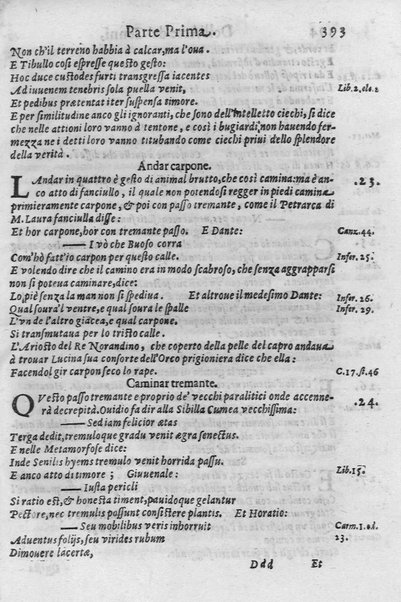 Parte Prima. 393
Non ch'il terreno habbia à calcar, ma l'oua.
E Tibullo così espresse questo gesto:
Hoc duce custodes furti transgressa iacentes
Ad iuuenem tenebris sola puella venit, Lib. 2. ele. 2
Et pedibus prætentat iter suspensa timore.
E per similitudine anco gli ignoranti, che sono dell'intelletto ciechi, si dice
che nelle attioni loro vanno à tentone, e così i bugiardi, non hauendo fer-
mezza ne i detti loro vanno titubando come ciechi priui dello splendore
della verità.
Andar carpone.
L'Andar in quattro è gesto di animal brutto, che così camina: ma è an- .23.
co atto di fanciullo, il quale non potendosi regger in piedi camina
primieramente carpone, & poi con passo tremante, come il Petrarca di
M. Laura fanciulla disse:
Et hor carpone, hor con tremante passo. E Dante: Canz. 44.
— I vò che Buoso corra
Com'hò fatt'io carpon per questo calle. Infer. 25.
E volendo dire che il camino era in modo scabroso, che senza aggrapparsi
non si poteua caminare, dice:
Lo, piè senza la man non si spediua. Et altroue il medesimo Dante: Infer. 26.
Qual soura'l ventre, e qual soura le spalle Infer. 29.
L'vn de l'altro giàcea, e qual carpone.
Si transmutaua per lo tristo calle.
L'Ariosto del Re Norandino, che coperto della pelle del capro andaua
à trouar Lucina sua consorte dell'Orco prigioniera dice che ella:
Facendol gir carpon seco lo rape. C. 17. st. 46
Caminar tremante.
QVesto passo tremante e proprio de' vecchi paralitici onde accenne- .24.
rà decrepità. Ouidio fa dir alla Sibilla Cumea vecchissima:
— Sed iam felicior ætas
Terga dedit, tremuloque gradu venit ægra senectus.
E nelle Metamorfose dice:
Inde Senilis hyems tremulo venit horrida passu.
E anco atto di timore; Giuuenale: Lib. 15.
— Iusta pericli
Si ratio est, & honesta timent, pauidoque gelantur
Pectore, nec tremulis possunt consistere plantis. Et Horatio:
— Seu mobilibus veris inhorruit Carm. 1. od.
Aduentus folijs, seu virides rubum 23.
Dimouere lacertæ,
Ddd Et